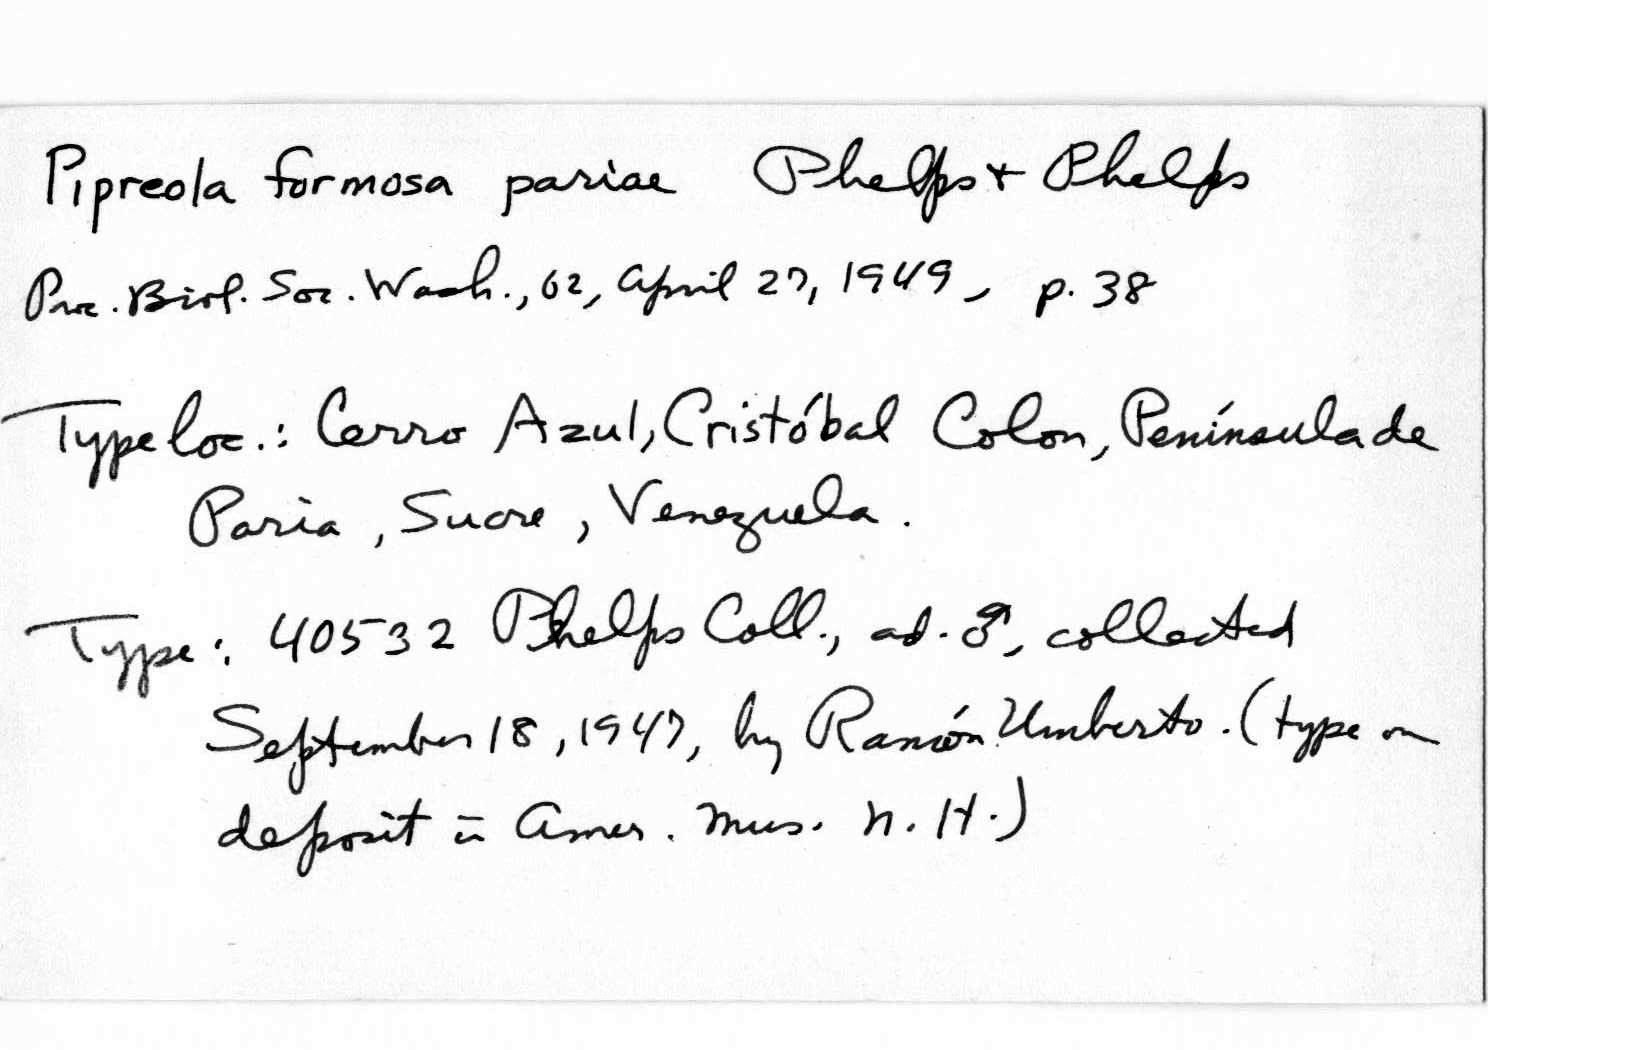 Pipreola formosa pariae Phelps + Phelps
Proc. Biol. Soc. Wash., 62, April 27, 1949, p. 38
Type loc.: Cerro Azul, Cristóbal Colon, Península de
Paria, Sucre, Venezuela.
Type: 40532 Phelps Coll., ad. ♂, collected
September 18, 1947, by Ramón Umberto. (type on
deposit in Amer. Mus. N. H.)